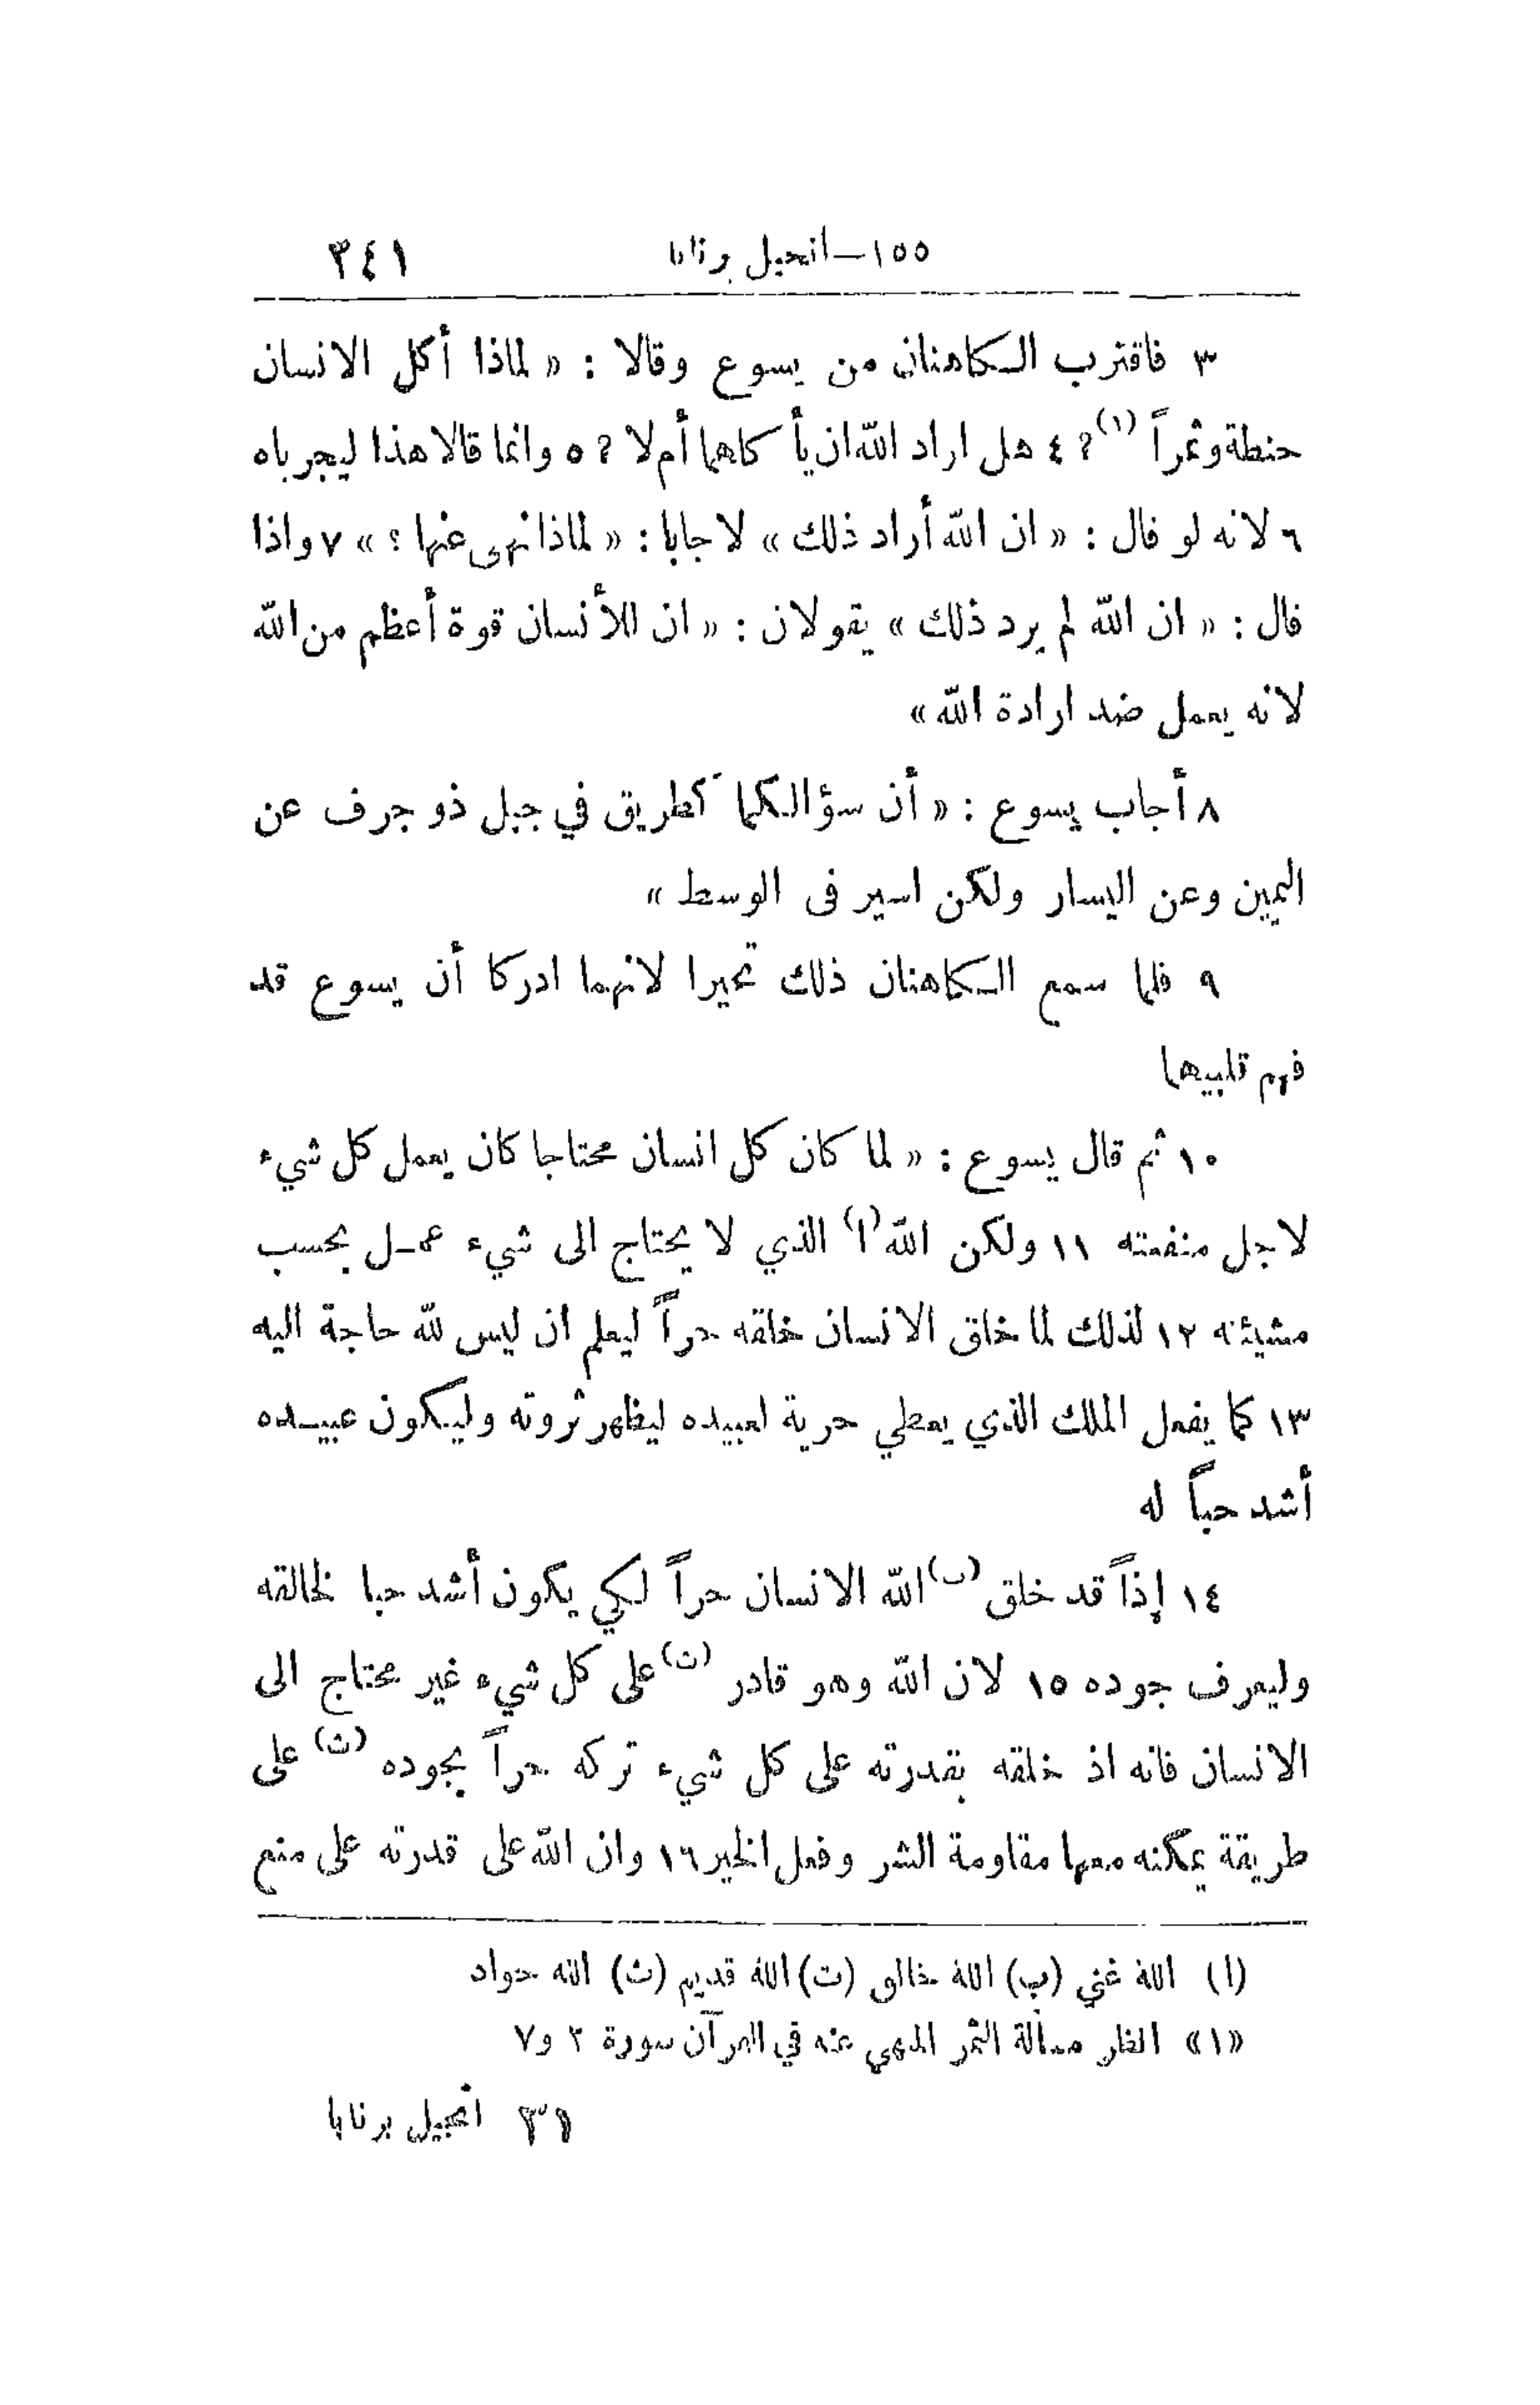 ١٥٥—انجيل برنابا ٣٤١
٣ فاقترب الكاهنان من يسوع وقالا : « لماذا أكل الانسان
حنطة وثمراً (١) ؟ ٤ هل اراد الله ان يأكلهما أم لا ؟ ٥ وانما قالا هذا ليجرباه
٦ لانه لو قال : « ان الله أراد ذلك » لاجابا : « لماذا نهى عنها ؟ » ٧ واذا
قال : « ان الله لم يرد ذلك » يقولان : « ان للأنسان قوة أعظم من الله
لانه يعمل ضد ارادة الله »
٨ أجاب يسوع : « أن سؤالكما كطريق في جبل ذو جرف عن
اليمين وعن اليسار ولكن اسير فى الوسط »
٩ فلما سمع الكاهنان ذلك تحيرا لانهما ادركا أن يسوع قد
فهم قلبيهما
١٠ ثم قال يسوع : « لما كان كل انسان محتاجا كان يعمل كل شيء
لاجل منفعته ١١ ولكن الله (ا) الذي لا يحتاج الى شيء عمـل بحسب
مشيئته ١٢ لذلك لما خلق الانسان خلقه حراً ليعلم ان ليس لله حاجة اليه
١٣ كما يفعل الملك الذي يعطي حرية لعبيده ليظهر ثروته وليكون عبيـده
أشد حباً له
١٤ إذاً قد خلق (ب) الله الانسان حراً لكي يكون أشد حبا لخالقه
وليعرف جوده ١٥ لان الله وهو قادر (ت) على كل شيء غير محتاج الى
الانسان فانه اذ خلقه بقدرته على كل شيء تركه حراً بجوده (ث) على
طريقة يمكنه معها مقاومة الشر وفعل الخير ١٦ وان الله على قدرته على منع
(ا) الله غني (ب) الله خالق (ت) الله قديم (ث) الله جواد
«١» انظر مسألة الثمر المنهي عنه في القرآن سورة ٢ و٧
٣١ انجيل برنابا